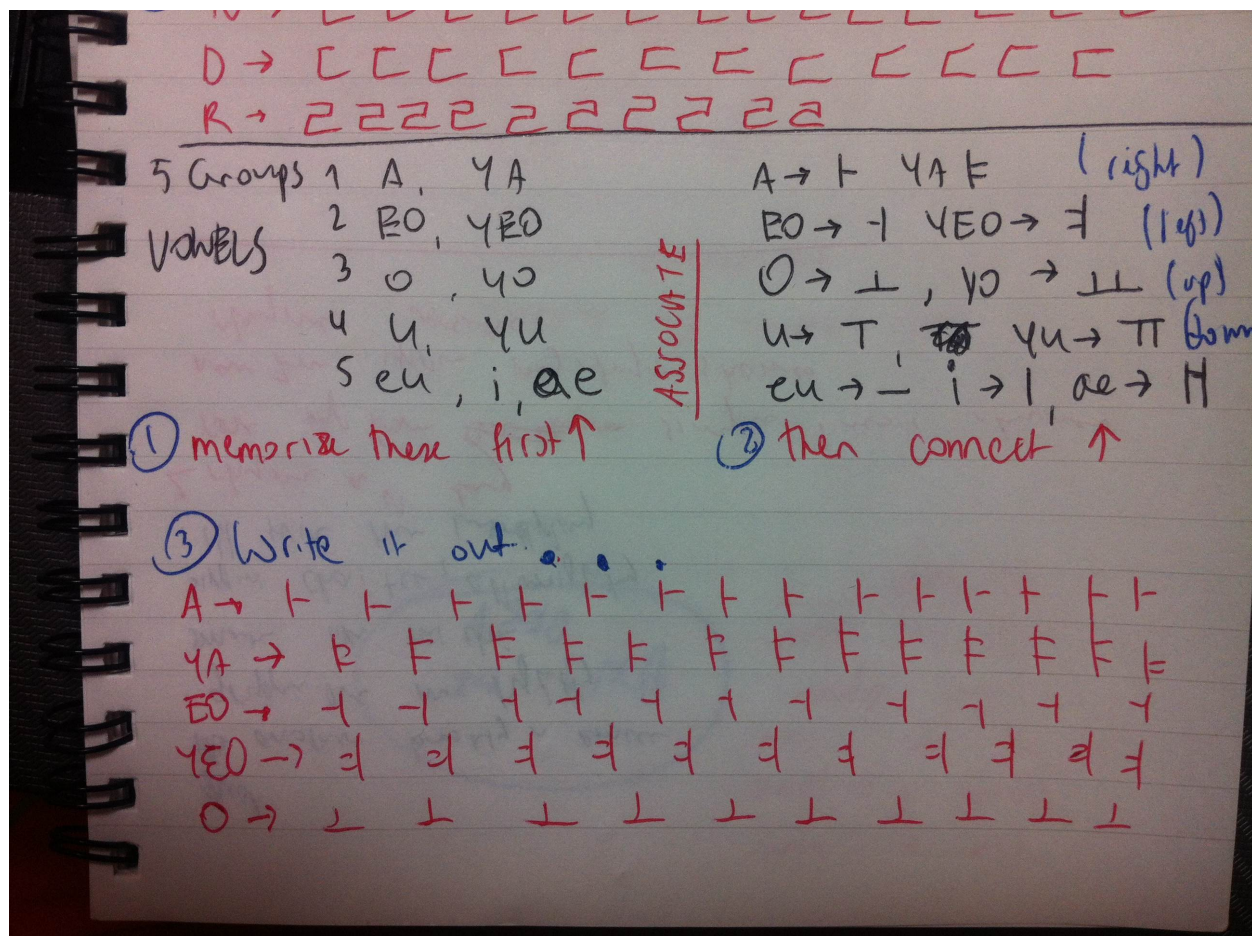 D → ㄷ ㄷ ㄷ ㄷ ㄷ ㄷ ㄷ ㄷ ㄷ ㄷ ㄷ ㄷ
R → ㄹ ㄹ ㄹ ㄹ ㄹ ㄹ ㄹ ㄹ ㄹ ㄹ
5 Groups 1 A, YA
VOWELS 2 EO, YEO
3 O, YO
4 U, YU
5 eu, i, ae
ASSOCIATE
A → ㅏ YA ㅑ (right)
EO → ㅓ YEO → ㅕ (left)
O → ㅗ, YO → ㅛ (up)
U → ㅜ, YU → ㅠ down
eu → ㅡ i → ㅣ, ae → ㅐ
① memorize these first ↑
② then connect ↑
③ Write it out...
A → ㅏ ㅏ ㅏ ㅏ ㅏ ㅏ ㅏ ㅏ ㅏ ㅏ ㅏ ㅏ ㅏ ㅏ
YA → ㅑ ㅑ ㅑ ㅑ ㅑ ㅑ ㅑ ㅑ ㅑ ㅑ ㅑ ㅑ ㅑ
EO → ㅓ ㅓ ㅓ ㅓ ㅓ ㅓ ㅓ ㅓ ㅓ ㅓ ㅓ
YEO → ㅕ ㅕ ㅕ ㅕ ㅕ ㅕ ㅕ ㅕ ㅕ ㅕ ㅕ
O → ㅗ ㅗ ㅗ ㅗ ㅗ ㅗ ㅗ ㅗ ㅗ ㅗ